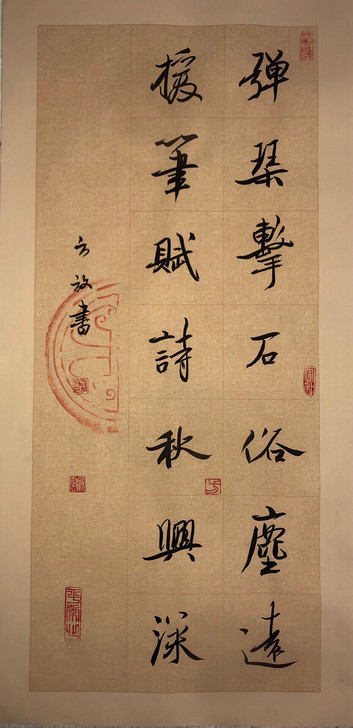 弹琹擊石俗塵遠
援筆賦詩秋興深
方放書